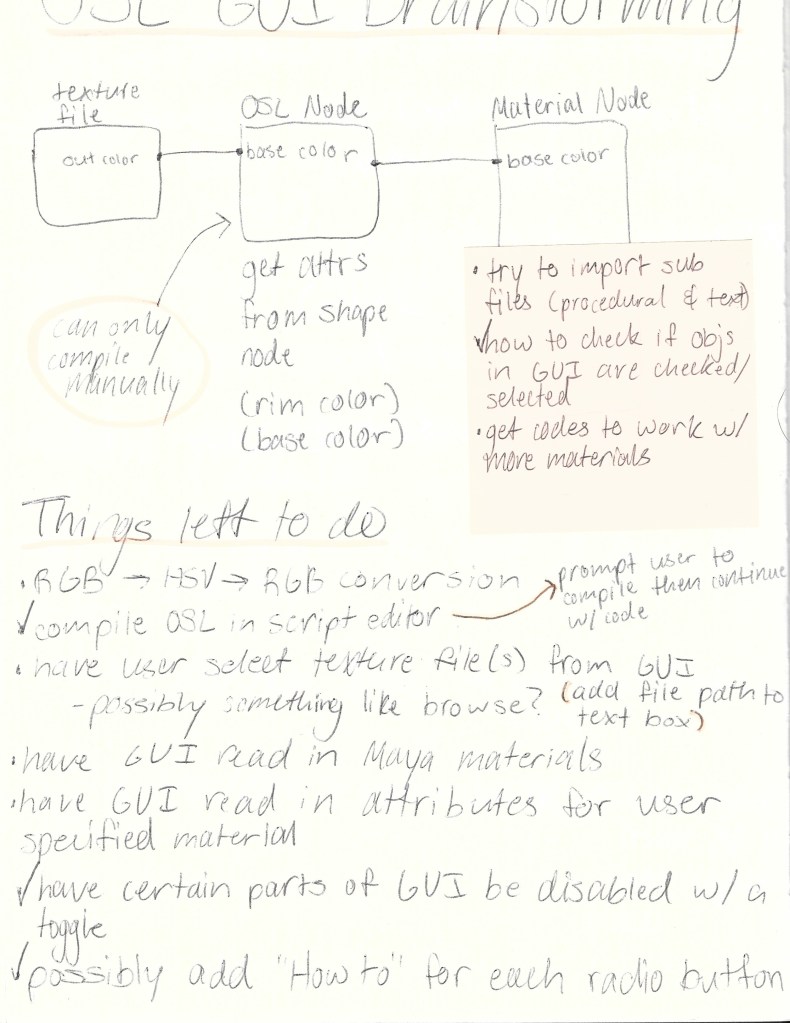 OSL GUI Brainstorming
texture
file
out color
OSL Node
base color
Material Node
base color
can only
compile
manually
get attrs
from shape
node
(rim color)
(base color)
• try to import sub
files (procedural & text)
✓how to check if objs
in GUI are checked/
selected
• get codes to work w/
more materials
Things left to do
• RGB → HSV → RGB conversion
✓compile OSL in script editor
prompt user to
compile then continue
w/ code
• have user select texture file(s) from GUI
- possibly something like browse? (add file path to
text box)
• have GUI read in Maya materials
• have GUI read in attributes for user
specified material
✓have certain parts of GUI be disabled w/ a
toggle
✓possibly add "How to" for each radio button